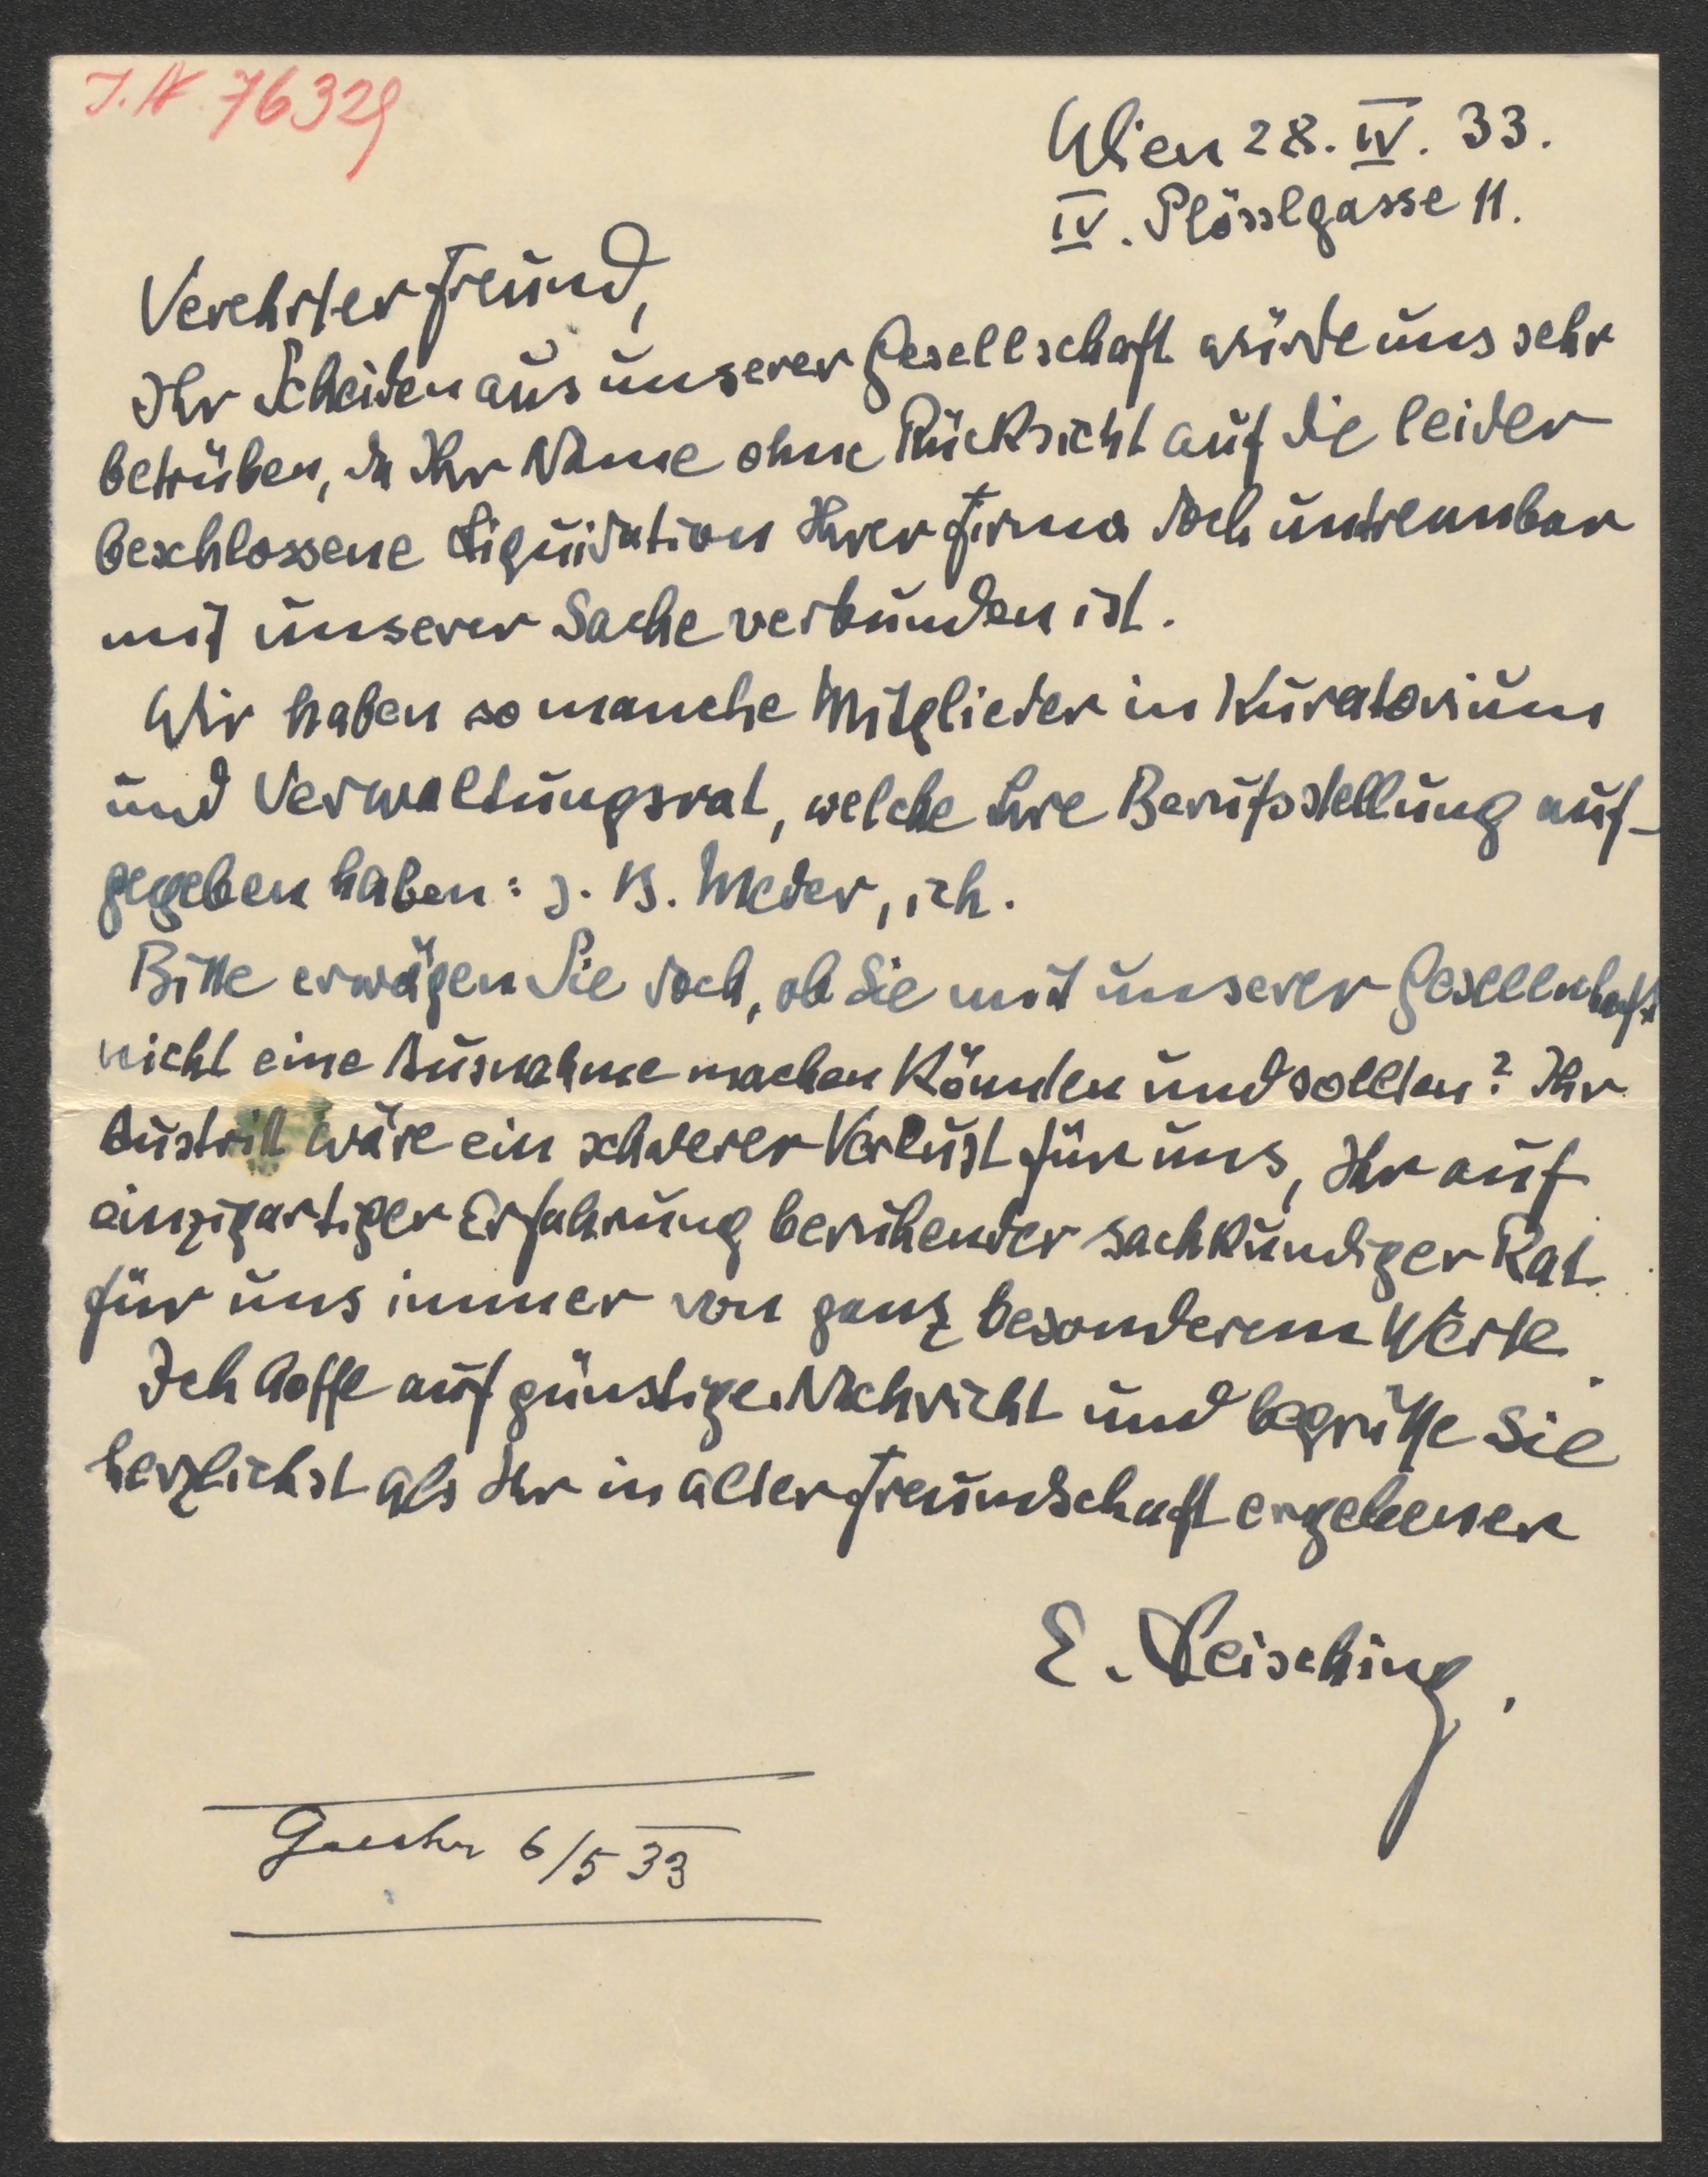 I. N. 76329
Wien 28. IV. 33.
IV. Plösslgasse 11.
Verehrter Freund,
Ihr Scheiden aus unserer Gesellschaft würde uns sehr
betrüben, da Ihr Name ohne Rücksicht auf die leider
beschlossene Liquidation Ihrer Firma doch untrennbar
mit unserer Sache verbunden ist.
Wir haben so manche Mitglieder in Kuratorium
und Verwaltungsrat, welche ihre Berufsstellung auf-
gegeben haben: z. B. Meder, ich.
Bitte erwägen Sie doch, ob Sie mit unserer Gesellschaft
nicht eine Ausnahme machen könnten und sollten? Ihr
Austritt wäre ein schwerer Verlust für uns, Ihr auf
einzigartiger Erfahrung beruhender sachkundiger Rat
für uns immer von ganz besonderem Werte.
Ich hoffe auf günstige Nachricht und begrüße Sie
herzlichst als Ihr in alter Freundschaft ergebener
E. Leisching.
6/5 33